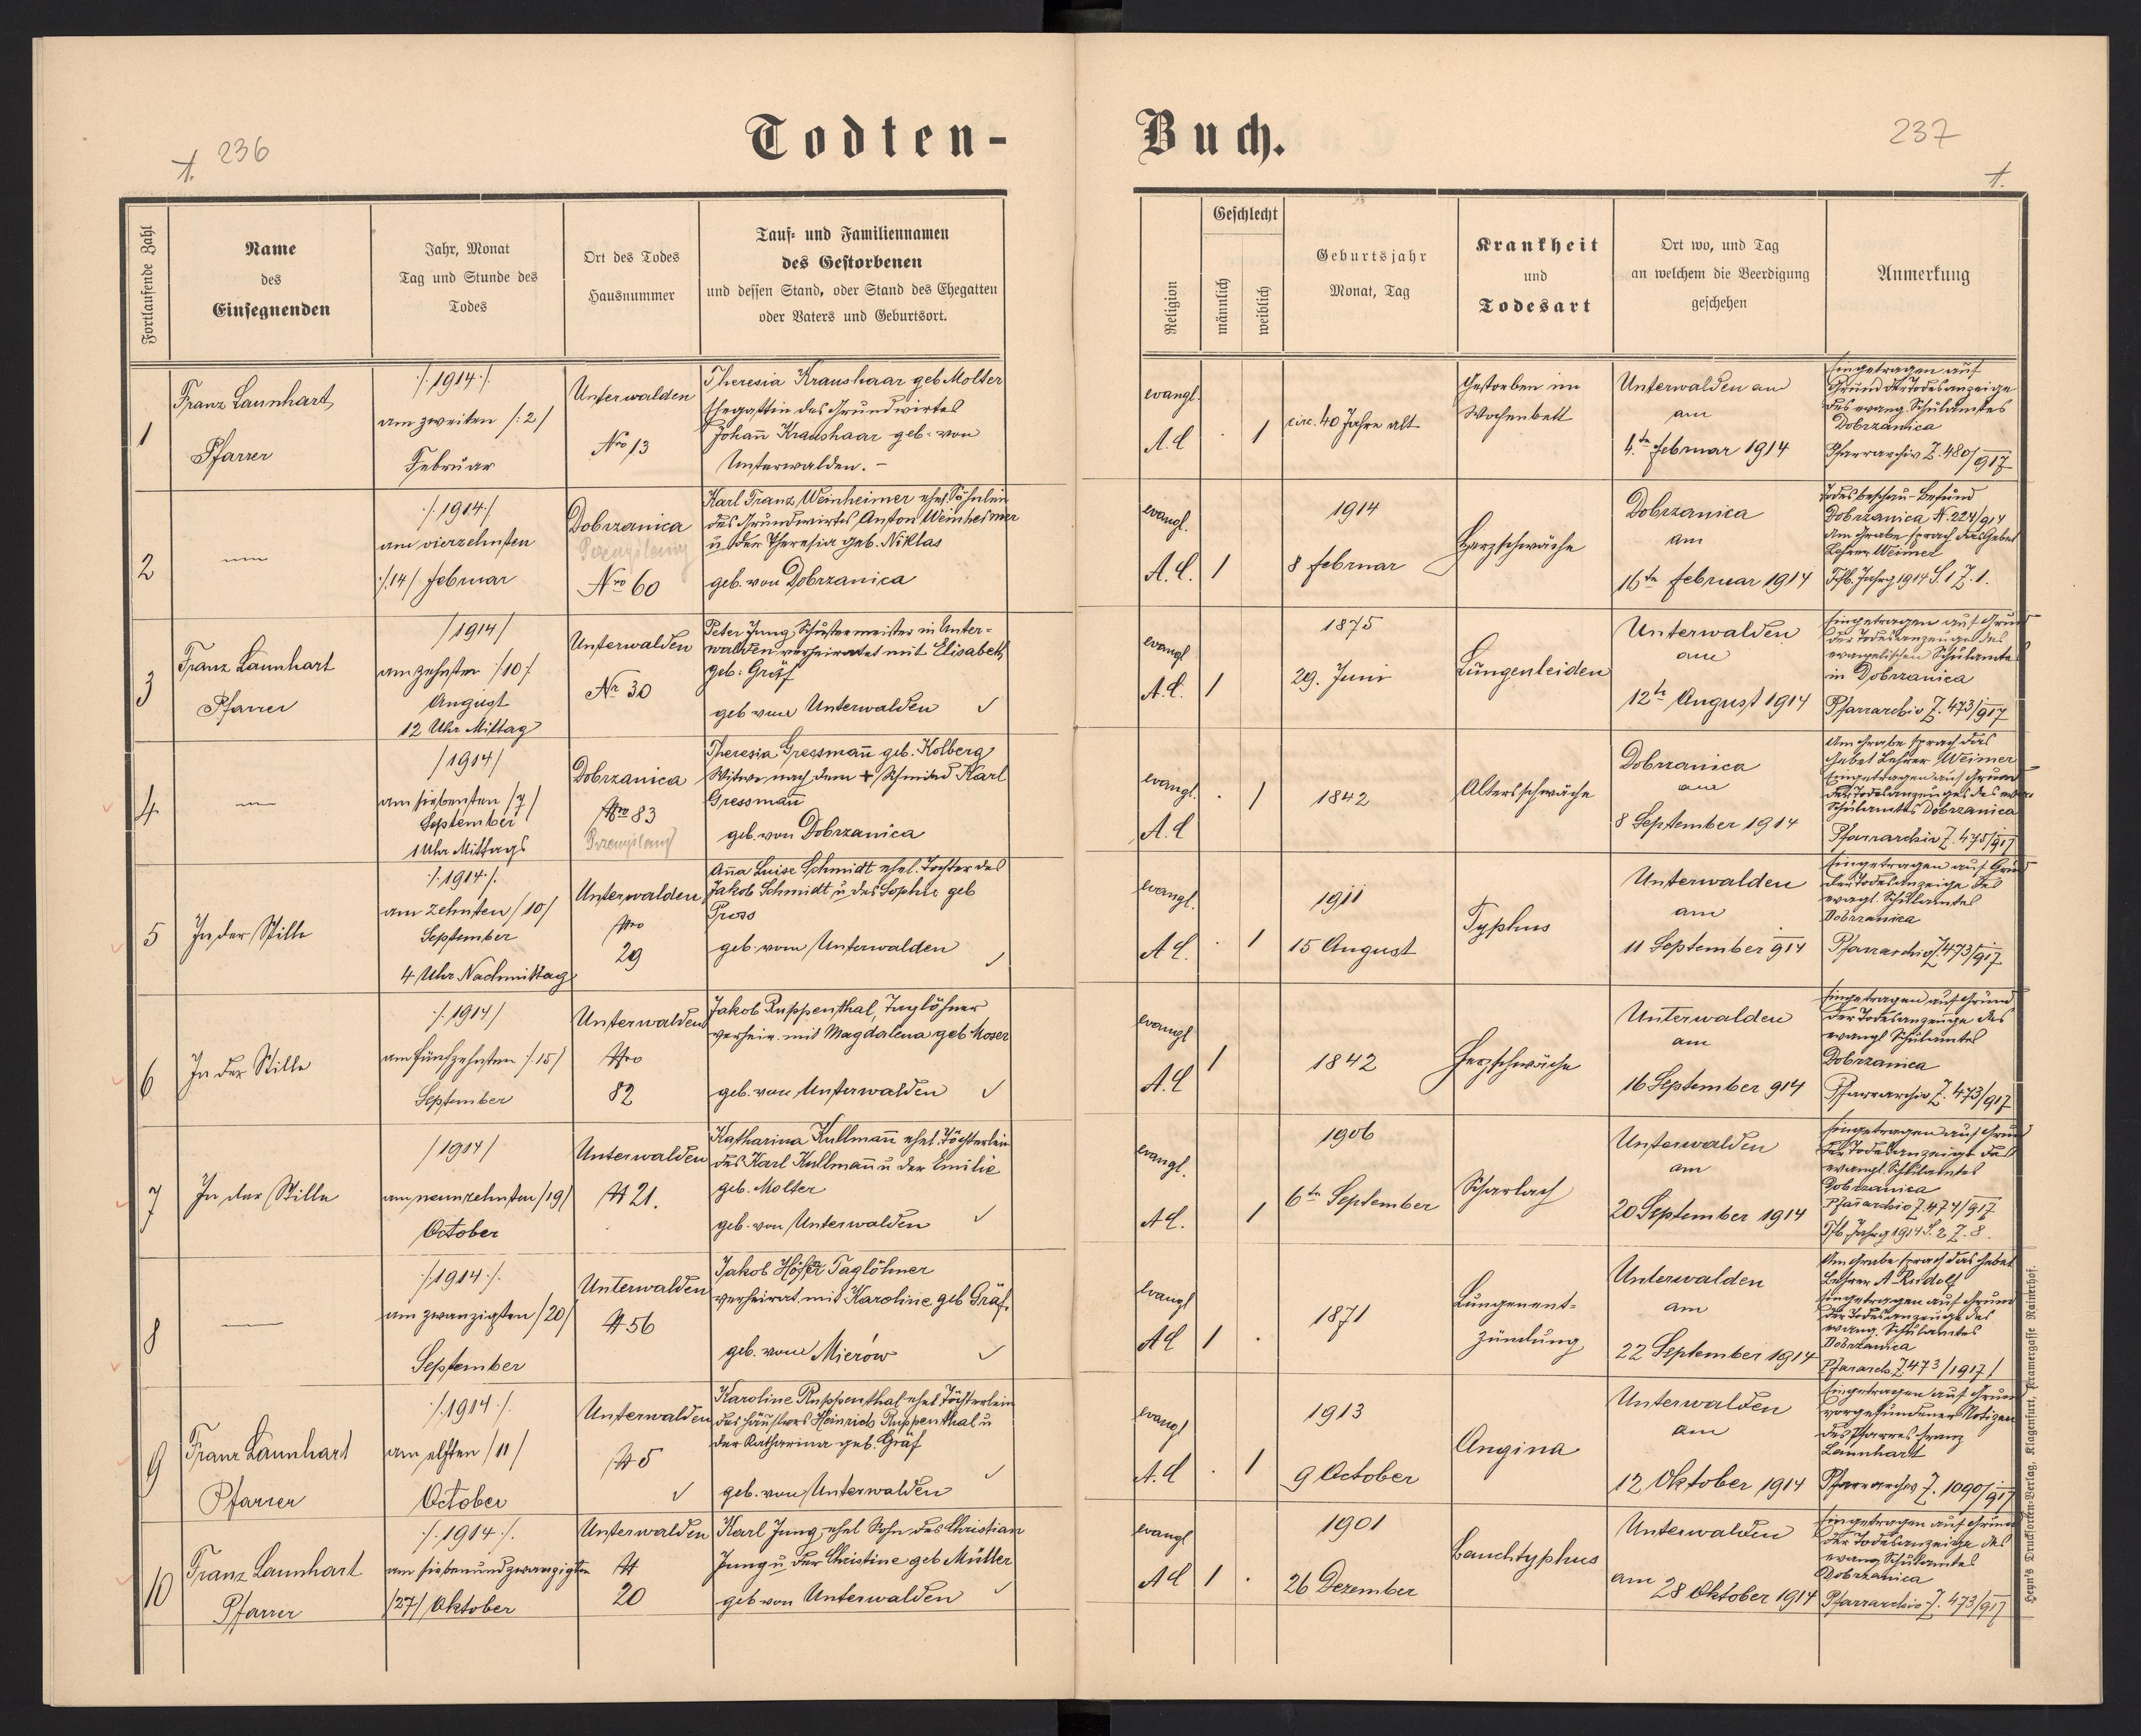 236
1.
Todten-
Fortlaufende Zahl
Name
des
Einsegnenden
Jahr, Monat
Tag und Stunde des
Todes
Ort des Todes
Hausnummer
Tauf- und Familiennamen
des Gestorbenen
und dessen Stand, oder Stand des Ehegatten
oder Vaters und Geburtsort.
1
Franz Launhart,
Pfarrer
/.1914./
am zweiten /:2/
Februar
Unterwalden
Nro 13
Theresia Kraushaar geb Molter
Ehegattin des Grundwirtes
Johann̄ Kraushaar geb. von
Unterwalden. –
2
/.1914/
am vierzehnten
/.14/ Februar
Dobrzanica
Przemyślany
Nro 60
Karl Franz Weinheimer ehel. Söhnlein
des Grundwirtes Anton Weinheimer
u der Theresia geb. Niklas
geb. von Dobrzanica
3
Franz Launhart
Pfarrer
/1914/
am zehnten /10/
August
12 Uhr Mittag
Unterwalden
Nr 30
Peter Jung, Schustermeister in Unter=
walden verheiratet mit Elisabeth
geb: Gräf
geb von Unterwalden
4
/1914/
am siebenten /7/
September
1 Uhr Mittags
Dobrzanica
Nro 83
Przemyślany
Theresia Gressman̄ geb. Kolberg
Witwe nach dem + Schmied Karl
Gressman̄
geb. von Dobrzanica
5
In der Stille
/.1914./
am zehnten /10/
September
4 Uhr Nachmittag
Unterwalden
Nro
29
An̄a Luise Schmidt ehel. Tochter des
Jakob Schmidt u. der Sophie geb
Press
geb. von Unterwalden
6
In der Stille
/.1914/
am fünfzehnten /.15/
September
Unterwalden
Nro
82
Jakob Ruppenthal, Taglöhner
verheir. mit Magdalena geb Moser
geb. von Unterwalden
7
In der Stille
/1914/
am neunzehnten /19/
October
Unterwalden
N 21.
Katharina Kullman̄ ehel. Töchterlein
des Karl Kullman̄ u der Emilie
geb. Molter
geb. von Unterwalden
8
/.1914./
am zwanzigsten /20/
September
Unterwalden
N 56
Jakob Höfer Taglöhner
verheirat. mit Karoline geb Gräf.
geb. von Mierów
9
Franz Launhart
Pfarrer
/.1914./
am elften /11/
October
Unterwalden
N 5
Karoline Ruppenthal ehel. Töchterlein
des Häuslers Heinrich Ruppenthal u
der Katharina geb. Gräf
geb. von Unterwalden
10
Franz Launhart
Pfarrer
/.1914./
am siebenundzwanzigsten
/27/ Oktober
Unterwalden
N
20
Karl Jung, ehel Sohn des Christian
Jung u. der Christine geb Müller
geb von Unterwalden
Buch.
237
1.
Religion
Geschlecht
männlich
weiblich
Geburtsjahr
Monat, Tag
Krankheit
und
Todesart
Ort wo, und Tag
an welchem die Beerdigung
geschehen
Anmerkung
evangl.
A.C
. 1
circ. 40 Jahre alt
Gestorben im
Wochenbett
Unterwalden am
am
4.te Februar 1914
Eingetragen auf
Grund der Todesanzeige
des evang. Schulamtes
Dobrzanica
Pfarrarchiv Z. 480/917
evangl.
A.C. 1
1914
8 Februar
Herzschwäche
Dobrzanica
am
16te Februar 1914
Todesbeschau-Befund
Dobrzanica N. 224/914
Am Grabe sprach das Gebet
Lehrer Weimer
Tfb. Jahrg 1914 S. 1 Z. 1.
evangl
A.C. 1
1875
29. Juni
Lungenleiden
Unterwalden
am
12te August 1914
Eingetragen auf Grund
der Todesanzeige des
evangelischen Schulamtes
in Dobrzanica
Pfarrarchiv Z. 473/917
evangl.
A.C
. 1
1842
Altersschwäche
Dobrzanica
am
8 September 1914
Am Grabe sprach das
Gebet Lehrer Weimer
Eingetragen auf Grund
der Todesanzeige des evang.
Schulamtes Dobrzanica
Pfarrarchiv Z. 475/917
evangl.
A C.
. 1
1911
15 August
Typhus
Unterwalden
am
11 September 914
Eingetragen auf Grund
der Todesanzeige des
evagl. Schulamtes
Dobrzanica
Pfarrarchiv Z. 473/917
evangl
A.C
1
1842
Herzschwäche
Unterwalden
am
16 September 914
Eingetragen auf Grund
der Todesanzeige des
evangl Schulamtes
Dobrzanica
Pfarrarchiv Z. 473/917
evangl.
A C.
1
1906
6te September
Scharlach
Unterwalden
am
20 September 1914
Eingetragen auf Grund
der Todesanzeige des
evangl. Schulamtes
Dobrzanica
Pfarrarchiv Z. 474/917
Tfb Jahrg 1914 S. 2 Z. 8.
evangl
A C
1 .
1871
Lungenent=
zündung
Unterwalden
am
22 September 1914
Am Grabe sprach das Gebet
Lehrer A. Rudolf
Eingetragen auf Grund
der Todesanzeige des
evang. Schulamtes
Dobrzanica
Pfararch. Z 473/1917/
evangl
A. C
. 1
1913
9 October
Angina
Unterwalden
am
12 Oktober 1914
Eingetragen auf Grund
vorgefundener Notizen
des Pfarrers Franz
Launhart
Pfarrarchiv Z. 1090/917
evangl
A C
1 .
1901
26 Dezember
Bauchtyphus
Unterwalden
am 28 Oktober 1914
Eingetragen auf Grund
der Todesanzeige des
evang Schulamtes
Dobrzanica
Pfarrarchiv Z. 473/917
Heyn's Drucksorten-Verlag, Klagenfurt, Kramergasse Rainerhof.